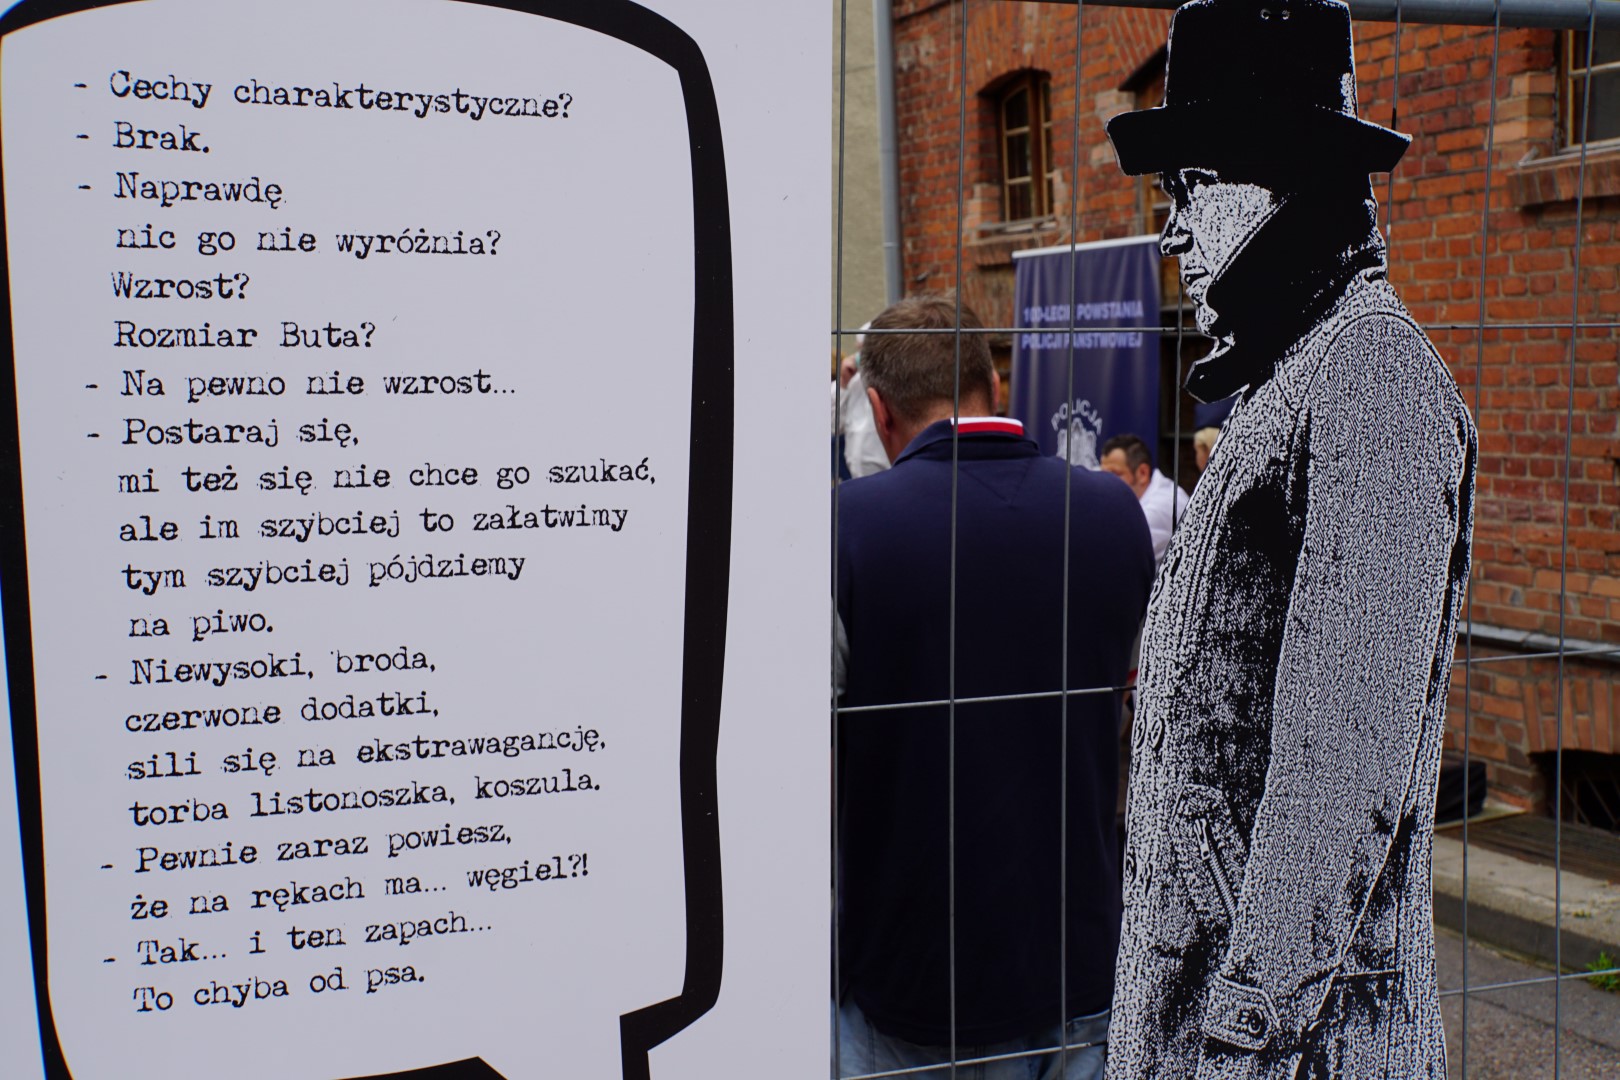 - Cechy charakterystyczne?
- Brak.
- Naprawdę
nic go nie wyróżnia?
Wzrost?
Rozmiar Buta?
- Na pewno nie wzrost...
- Postaraj się,
mi też się nie chce go szukać,
ale im szybciej to załatwimy
tym szybciej pójdziemy
na piwo.
- Niewysoki, broda,
czerwone dodatki,
sili się na ekstrawagancję,
torba listonoszka, koszula.
- Pewnie zaraz powiesz,
że na rękach ma... węgiel?!
- Tak... i ten zapach...
To chyba od psa.
100-LECIE POWSTANIA
POLICJI PAŃSTWOWEJ
POLICJA